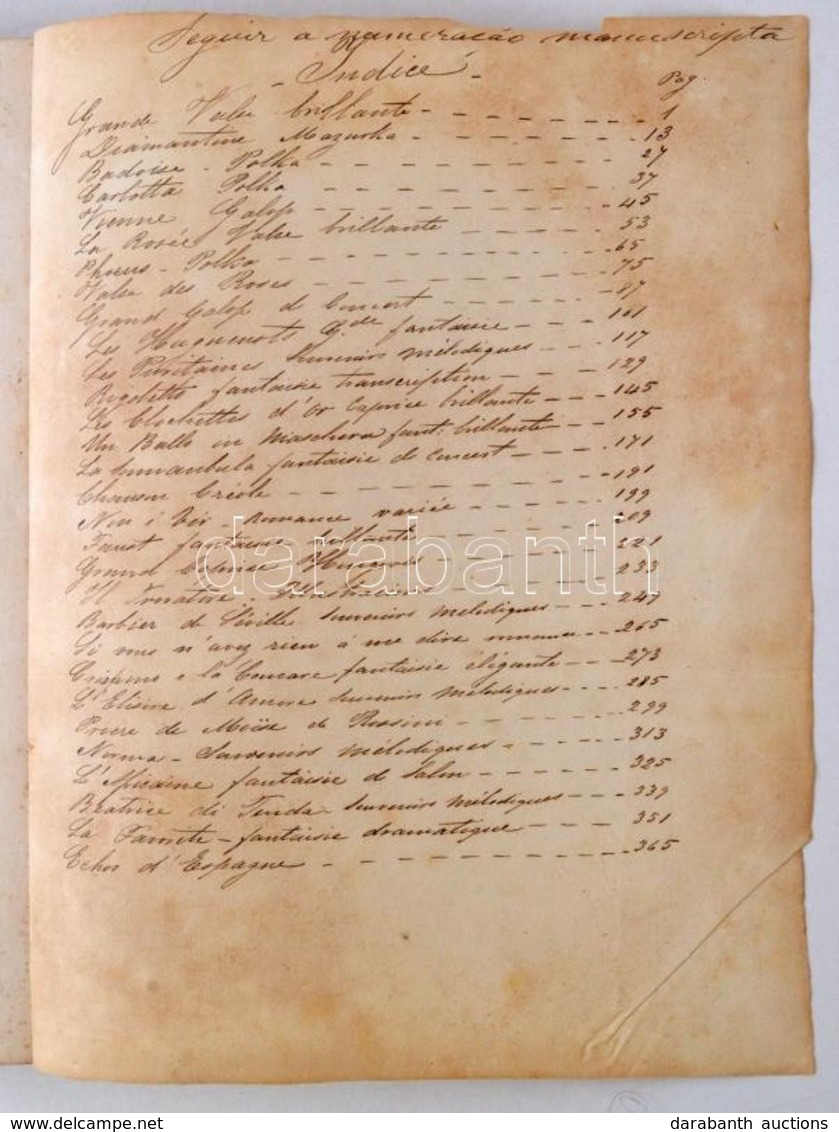 Seguir a numeração manuscripta
- Indice -
Pag.
Grande Valse brillante - - - - - - - 1
Diamantine Mazurka - - - - - - - 13
Badoise - Polka - - - - - - - 27
Carlotta Polka - - - - - - - 37
Vienne Galop - - - - - - - 45
La Rosée Valse brillante - - - - - 53
Polka - - - - - - - 65
Valse des Roses - - - - - - - 75
Grand Galop de Concert - - - - - 87
Les Huguenots Gde fantaisie - - - 101
Les Puritaines Souvenirs mélodiques - - - 117
Rigoletto fantaisie transcription - - - - 129
Les Clochettes d'Or Caprice brillante - - - 145
Un Ballo in Maschera fant: brillante - - - 155
La Sonnambula fantaisie de Concert - - - - 171
Chanson Créole - - - - - - - 191
Nin i Tér - Romance variée - - - - 199
Faust fantaisie brillante - - - - 209
Grand Hongrois - - - - 221
Il Trovatore - Illustrations - - - - 233
Barbier de Séville Souvenirs mélodiques - - - 247
Si vous n'avez rien à me dire romance - - - 265
Crispino e la Comare fantaisie élégante - - - 273
L'Elisire d'Amore Souvenirs mélodiques - - - 285
Priere de Moïse de Rossini - - - - - 299
Norma - Souvenirs mélodiques - - - - 313
L'Africaine fantaisie de Salon - - - - 325
Béatrice di Tenda Souvenirs mélodiques - - - 339
La Favorite - fantaisie dramatique - - - - 351
Echos d'Espagne - - - - - - - 365
darabanth
www.delcampe.net
darabanth auctions